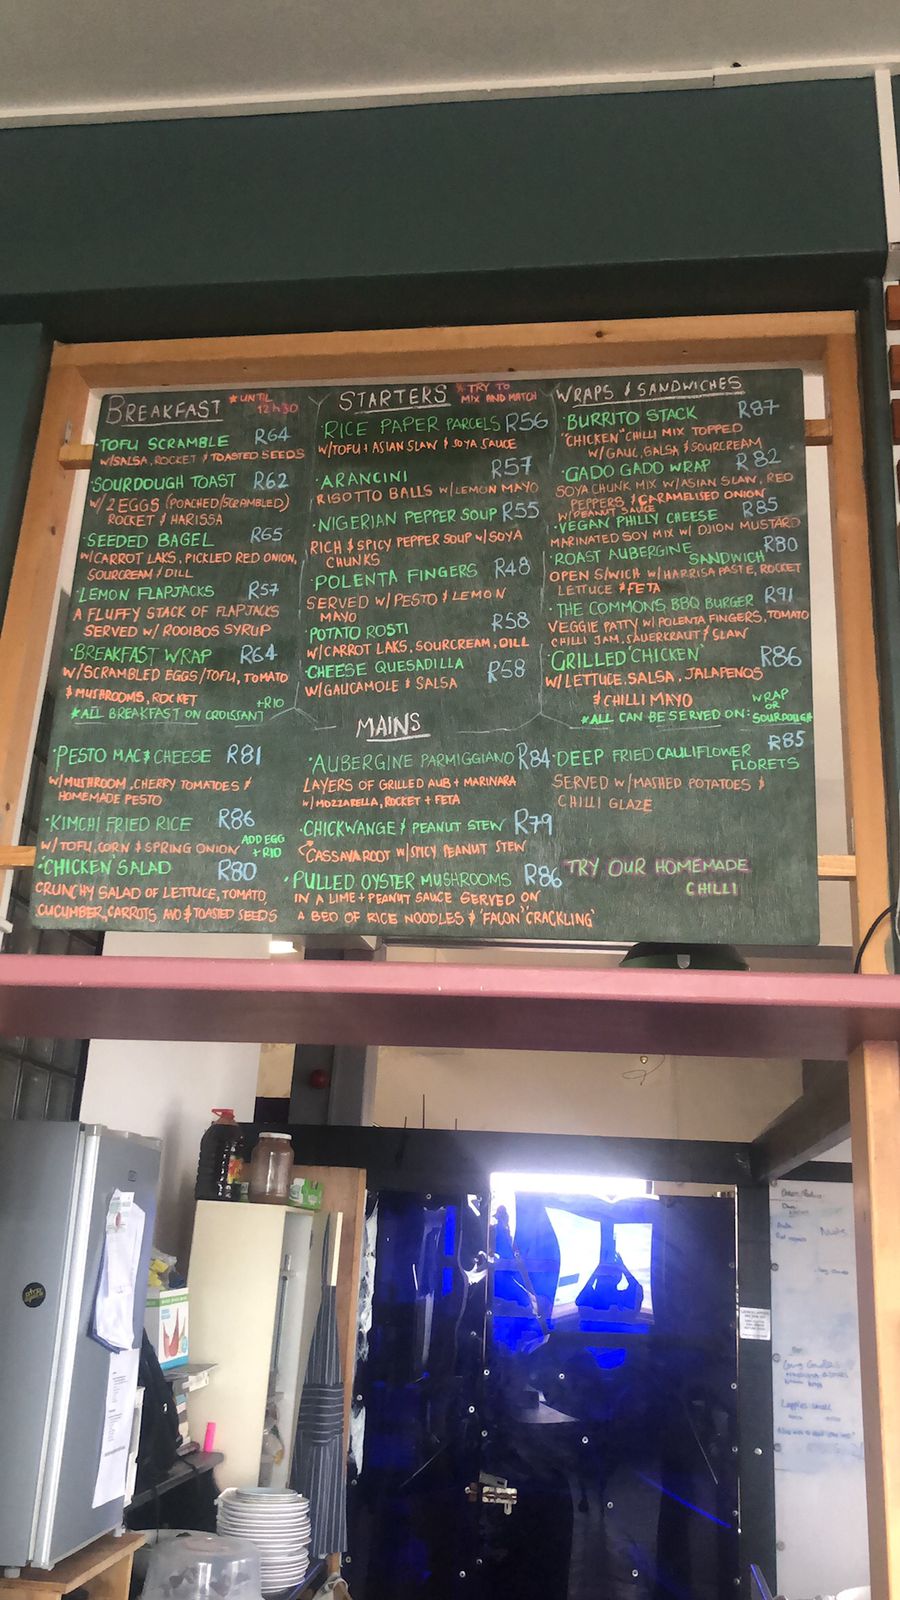 BREAKFAST
*UNTIL
12h30
·TOFU SCRAMBLE R64
W/SALSA, ROCKET & TOASTED SEEDS
·SOURDOUGH TOAST R62
W/ 2 EGGS (POACHED/SCRAMBLED)
ROCKET & HARISSA
·SEEDED BAGEL R65
W/CARROT LAKS, PICKLED RED ONION,
SOURCREAM & DILL
·LEMON FLAPJACKS R57
A FLUFFY STACK OF FLAPJACKS
SERVED W/ ROOIBOS SYRUP
·BREAKFAST WRAP R64
W/SCRAMBLED EGGS/TOFU, TOMATO
& MUSHROOMS, ROCKET
+R10
*ALL BREAKFAST ON CROISSANT
STARTERS
*TRY TO
MIX AND MATCH
·RICE PAPER PARCELS R56
W/TOFU + ASIAN SLAW & SOYA SAUCE
·ARANCINI R57
RISOTTO BALLS W/LEMON MAYO
·NIGERIAN PEPPER SOUP R55
RICH & SPICY PEPPER SOUP W/SOYA
CHUNKS
·POLENTA FINGERS R48
SERVED W/PESTO & LEMON
MAYO
·POTATO ROSTI R58
W/CARROT LAKS, SOURCREAM, DILL
·CHEESE QUESADILLA R58
W/GAUCAMOLE & SALSA
WRAPS & SANDWICHES
·BURRITO STACK R87
"CHICKEN" CHILLI MIX TOPPED
W/GAUC, SALSA & SOURCREAM
·GADO GADO WRAP R82
SOYA CHUNK MIX W/ASIAN SLAW, RED
PEPPERS & CARAMELISED ONION
W/PEANUT SAUCE
·VEGAN PHILLY CHEESE R85
MARINATED SOY MIX W/ DIJON MUSTARD
·ROAST AUBERGINE SANDWICH R80
OPEN S/WICH W/HARRISA PASTE, ROCKET
LETTUCE & FETA
·THE COMMONS BBQ BURGER R91
VEGGIE PATTY W/POLENTA FINGERS, TOMATO
CHILLI JAM, SAUERKRAUT & SLAW
·GRILLED 'CHICKEN' R86
W/LETTUCE, SALSA, JALAPENOS
& CHILLI MAYO
*ALL CAN BE SERVED ON: WRAP
OR
SOURDOUGH
MAINS
·PESTO MAC & CHEESE R81
W/MUSHROOM, CHERRY TOMATOES &
HOMEMADE PESTO
·KIMCHI FRIED RICE R86
W/TOFU, CORN & SPRING ONION
ADD EGG
+R10
·'CHICKEN' SALAD R80
CRUNCHY SALAD OF LETTUCE, TOMATO,
CUCUMBER, CARROTS, AVO & TOASTED SEEDS
·AUBERGINE PARMIGGIANO R84
LAYERS OF GRILLED AUB + MARINARA
W/MOZZARELLA, ROCKET + FETA
·CHICKWANGE & PEANUT STEW R79
CASSAVA ROOT W/SPICY PEANUT STEW
·PULLED OYSTER MUSHROOMS R86
IN A LIME + PEANUT SAUCE SERVED ON
A BED OF RICE NOODLES & 'FACON' 'CRACKLING'
·DEEP FRIED CAULIFLOWER R85
FLORETS
SERVED W/MASHED POTATOES &
CHILLI GLAZE
TRY OUR HOMEMADE
CHILLI